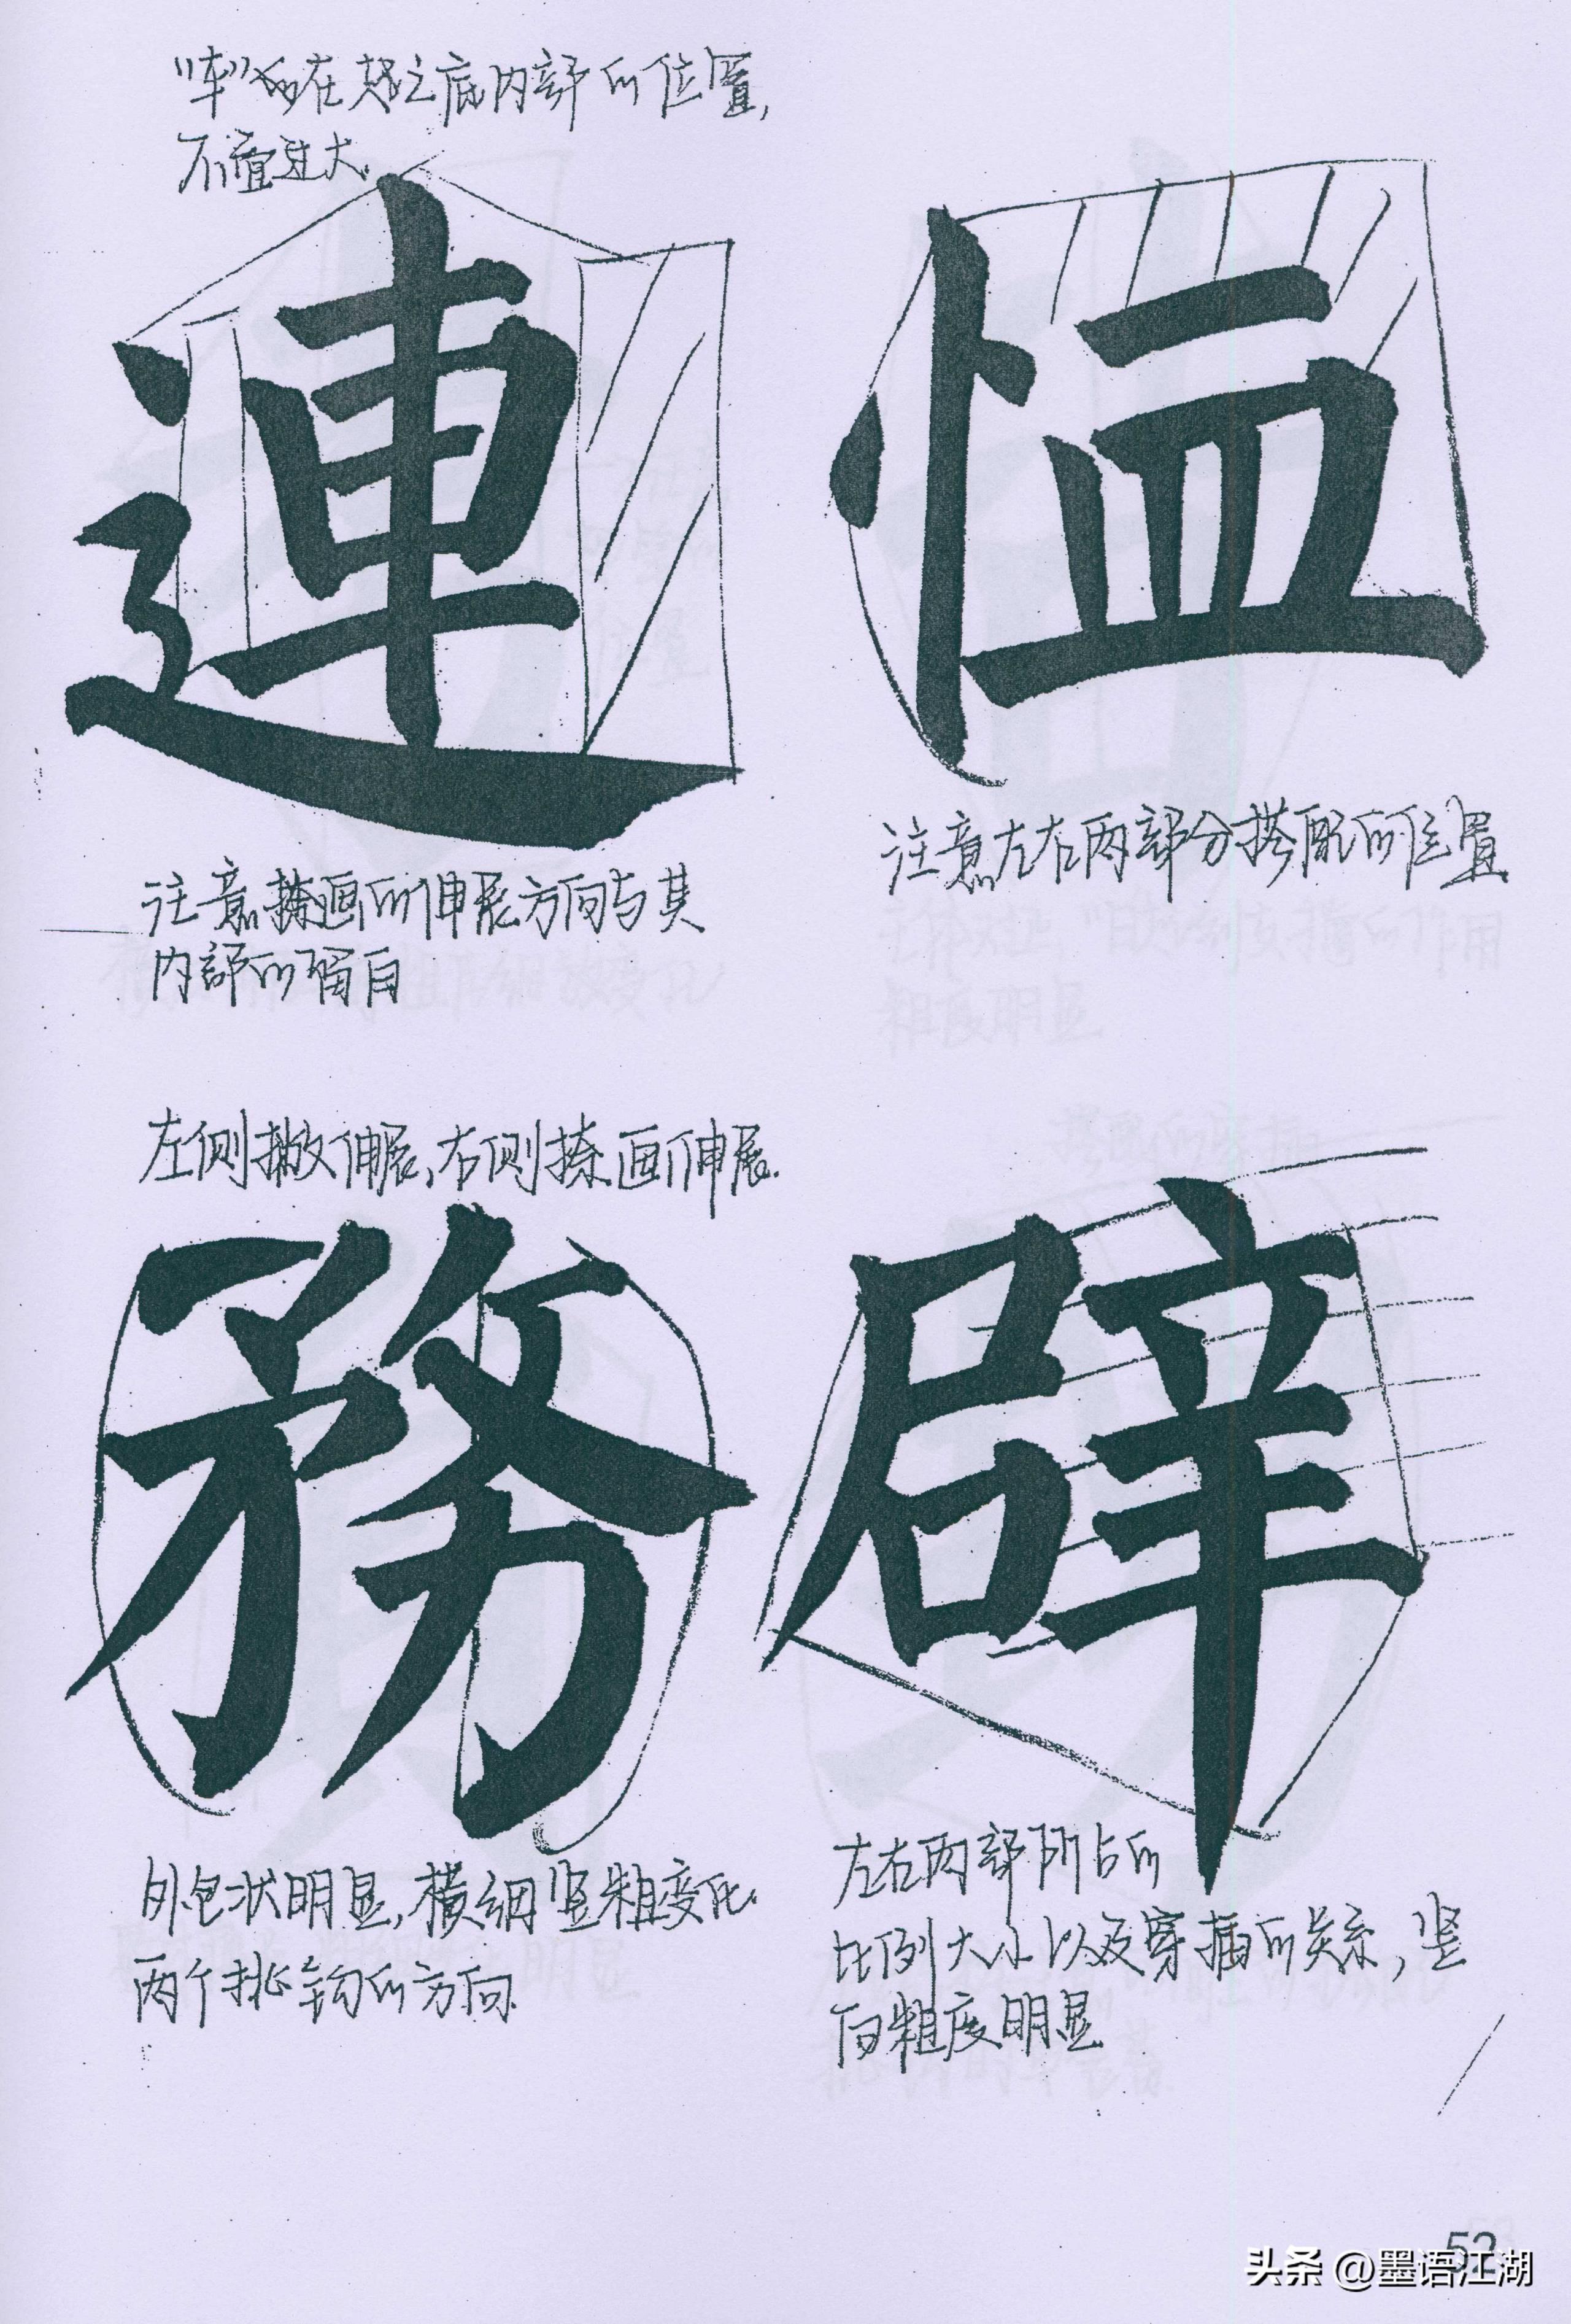 "车"的在走之底内部的位置,
不宜过大.
連
恤
注意左右两部分搭配的位置
注意捺画的伸展方向与其
内部的留白
左侧撇伸展,右侧捺画伸展.
務
辟
外包状明显,横细竖粗变化.
两个挑钩的方向.
左右两部所占的
比例大小以及穿插的关系,竖
向粗度明显
52
头条 @墨语江湖